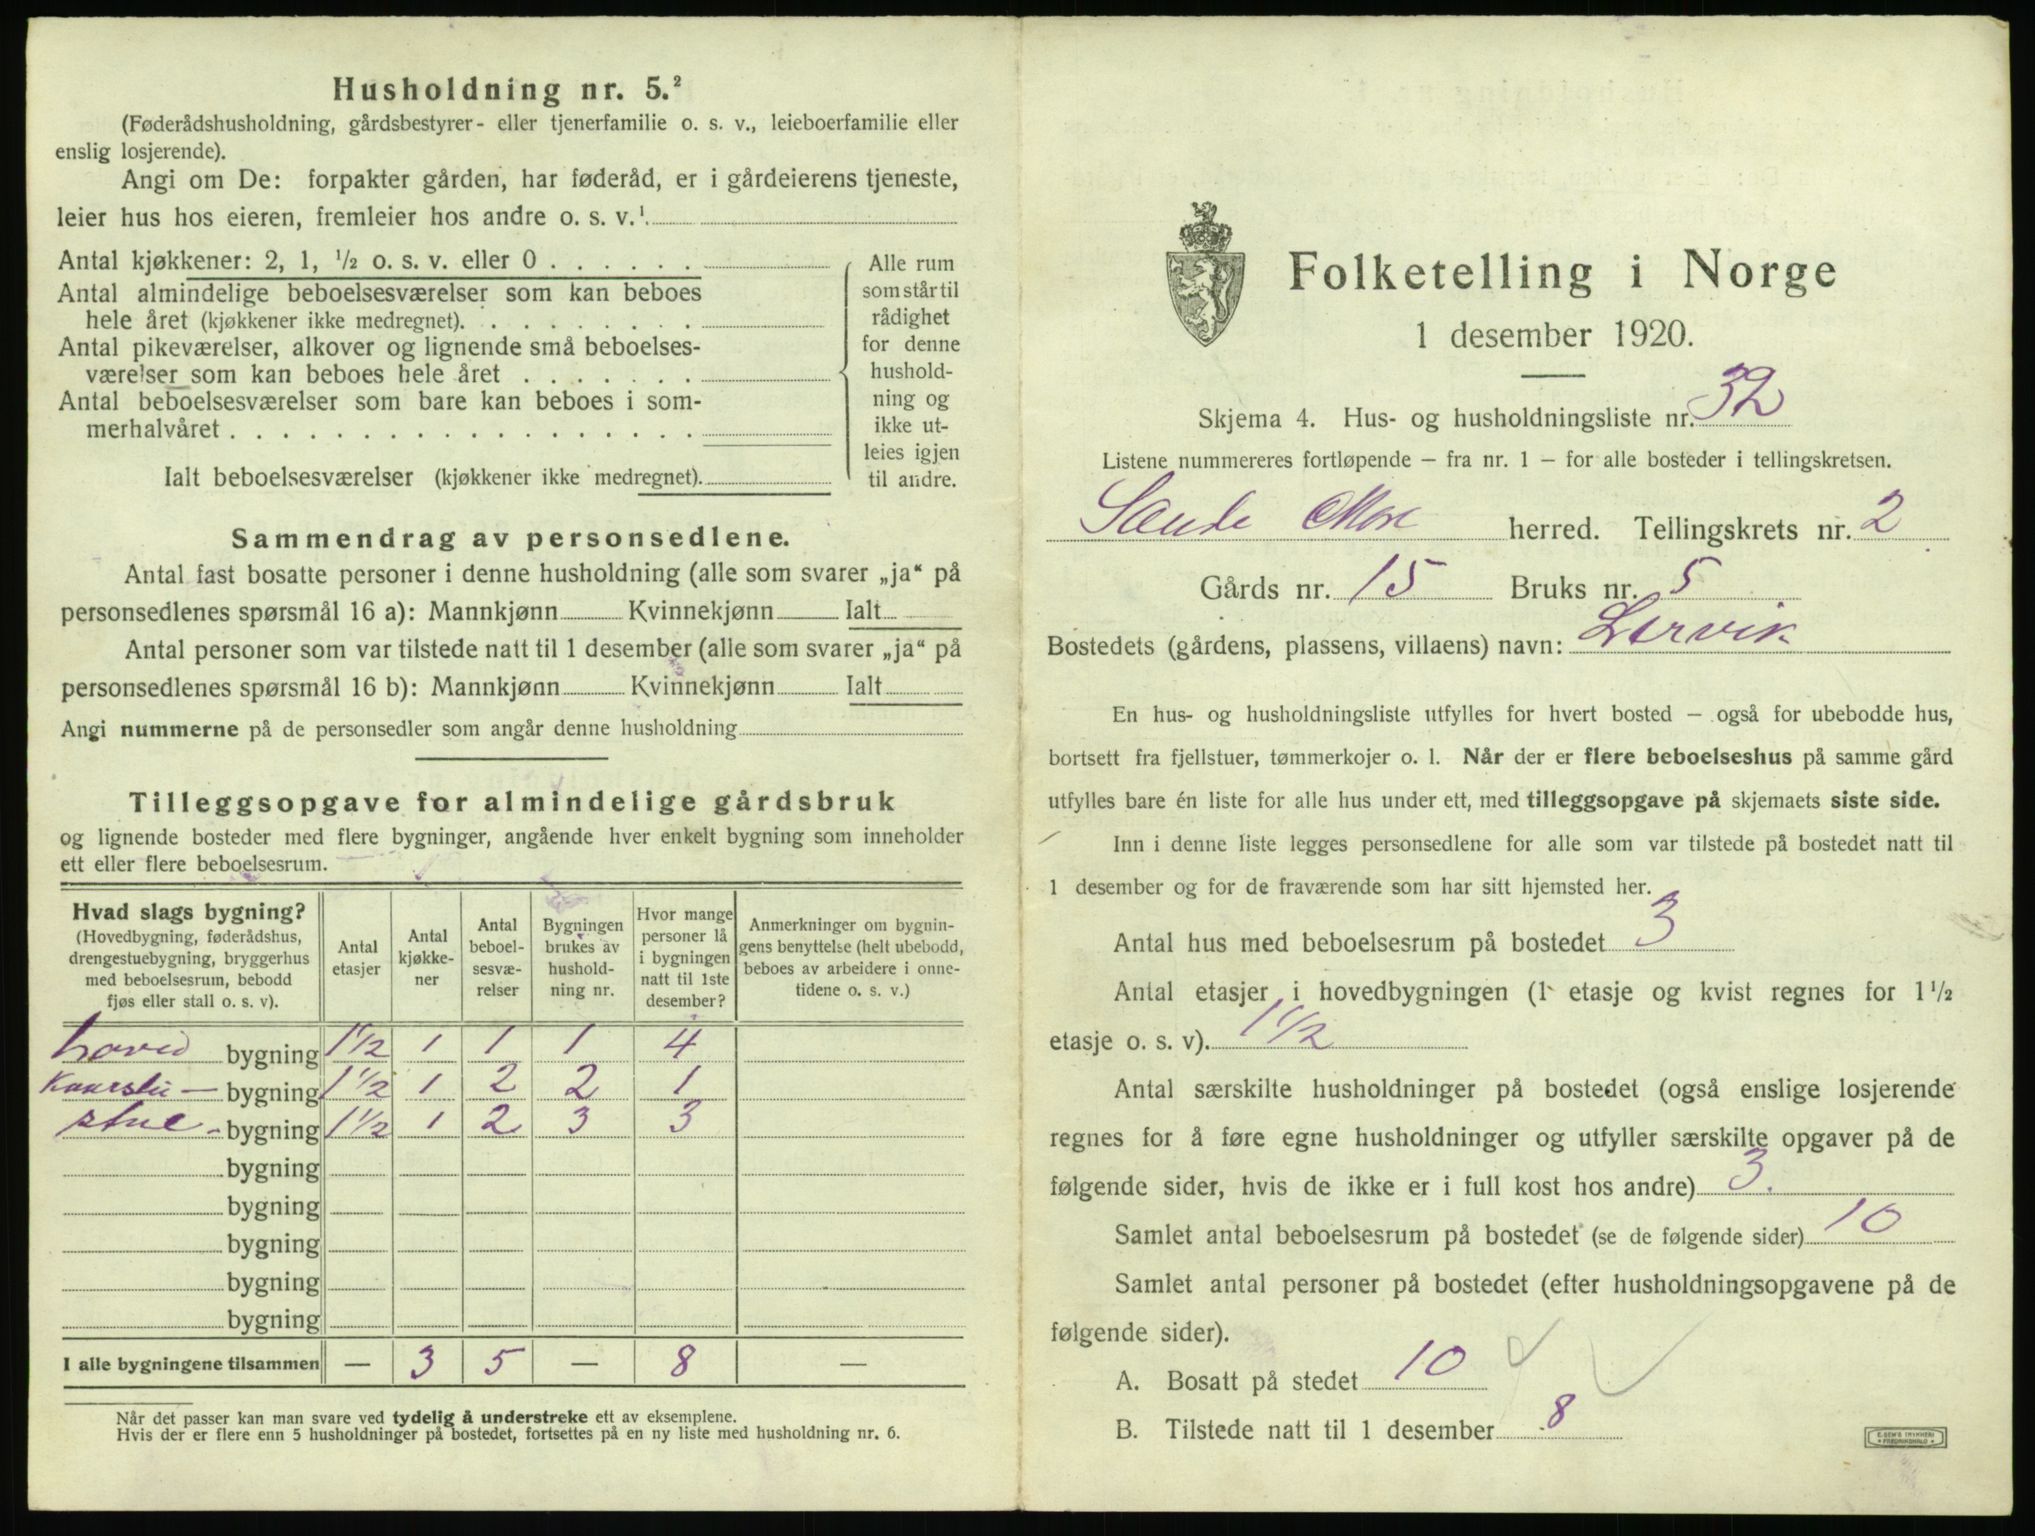 Husholdning nr. 5.²
(Føderådshusholdning, gårdsbestyrer- eller tjenerfamilie o. s. v., leieboerfamilie eller
enslig losjerende).
Angi om De: forpakter gården, har føderåd, er i gårdeierens tjeneste,
leier hus hos eieren, fremleier hos andre o. s. v.¹
Antal kjøkkener: 2, 1, ½ o. s. v. eller 0
Antal almindelige beboelsesværelser som kan beboes
hele året (kjøkkener ikke medregnet).
Antal pikeværelser, alkover og lignende små beboelses-
værelser som kan beboes hele året
Antal beboelsesværelser som bare kan beboes i som-
merhalvåret
Ialt beboelsesværelser (kjøkkener ikke medregnet).
Alle rum
som står til
rådighet
for denne
hushold-
ning og
ikke ut-
leies igjen
til andre.
Sammendrag av personsedlene.
Antal fast bosatte personer i denne husholdning (alle som svarer „ja“ på
personsedlenes spørsmål 16 a): Mannkjønn Kvinnekjønn Ialt
Antal personer som var tilstede natt til 1 desember (alle som svarer „ja“ på
personsedlenes spørsmål 16 b): Mannkjønn Kvinnekjønn Ialt
Angi nummerne på de personsedler som angår denne husholdning
Tilleggsopgave for almindelige gårdsbruk
og lignende bosteder med flere bygninger, angående hver enkelt bygning som inneholder
ett eller flere beboelsesrum.
Hvad slags bygning?
(Hovedbygning, føderådshus,
drengestuebygning, bryggerhus
med beboelsesrum, bebodd
fjøs eller stall o. s. v).
Antal
etasjer
Antal
kjøkke-
ner
Antal
beboel-
sesvæ-
relser
Bygningen
brukes av
hushold-
ning nr.
Hvor mange
personer lå
i bygningen
natt til 1ste
desember?
Anmerkninger om bygnin-
gens benyttelse (helt ubebodd,
beboes av arbeidere i onne-
tidene o. s. v.)
hoved bygning 1½ 1 1 1 4
Kaarstu – bygning 1½ 1 2 2 1
stue - bygning 1½ 1 2 3 3
bygning
bygning
bygning
bygning
bygning
I alle bygningene tilsammen — 3 5 — 8 —
Når det passer kan man svare ved tydelig å understreke ett av eksemplene.
Hvis der er flere enn 5 husholdninger på bostedet, fortsettes på en ny liste med husholdning nr. 6.
Folketelling i Norge
1 desember 1920.
Skjema 4. Hus- og husholdningsliste nr. 32
Listene nummereres fortløpende – fra nr. 1 – for alle bosteder i tellingskretsen.
Sande Møre herred. Tellingskrets nr. 2
Gårds nr. 15 Bruks nr. 5
Bostedets (gårdens, plassens, villaens) navn: Lervik
En hus- og husholdningsliste utfylles for hvert bosted – også for ubebodde hus,
bortsett fra fjellstuer, tømmerkojer o. l. Når der er flere beboelseshus på samme gård
utfylles bare én liste for alle hus under ett, med tilleggsopgave på skjemaets siste side.
Inn i denne liste legges personsedlene for alle som var tilstede på bostedet natt til
1 desember og for de fraværende som har sitt hjemsted her.
Antal hus med beboelsesrum på bostedet 3
Antal etasjer i hovedbygningen (1 etasje og kvist regnes for 1½
etasje o. s. v). 1½
Antal særskilte husholdninger på bostedet (også enslige losjerende
regnes for å føre egne husholdninger og utfyller særskilte opgaver på de
følgende sider, hvis de ikke er i full kost hos andre) 3.
Samlet antal beboelsesrum på bostedet (se de følgende sider) 10
Samlet antal personer på bostedet (efter husholdningsopgavene på de
følgende sider).
A. Bosatt på stedet 10
B. Tilstede natt til 1 desember 8